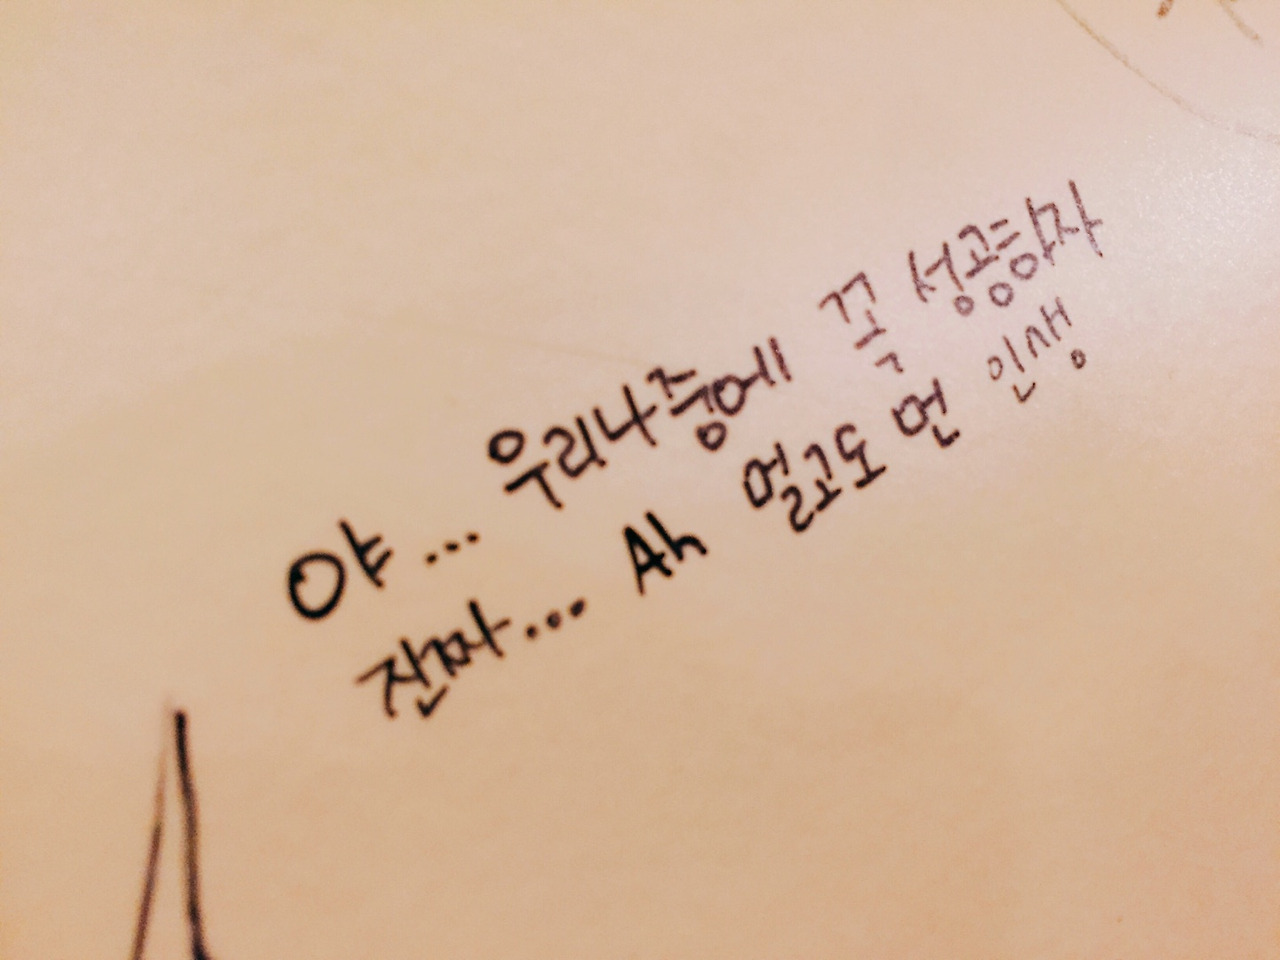 야... 우리나중에 꼭 성공하자
진짜... Ah 멀고도 먼 인생